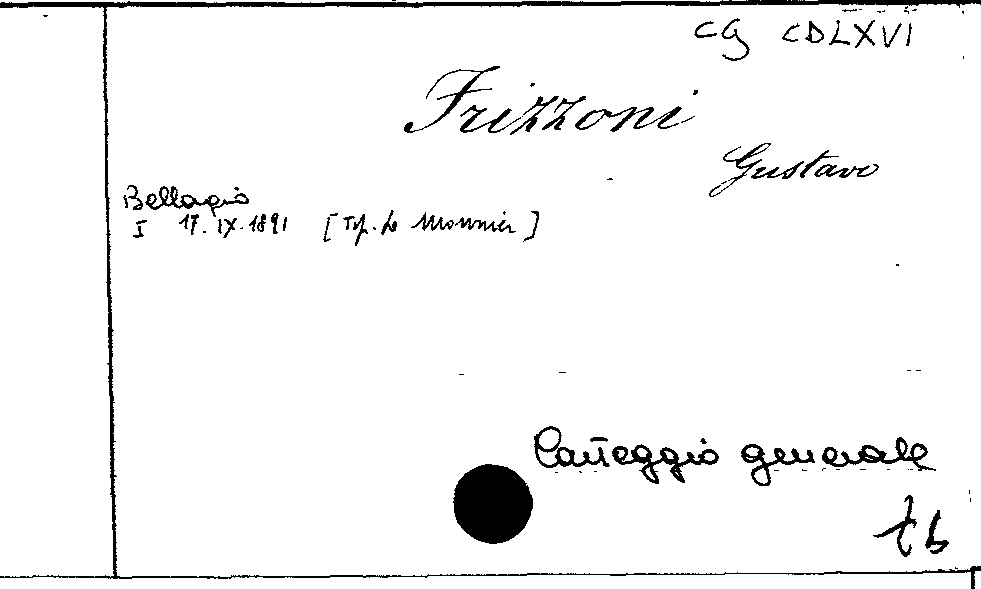 CG CDLXVI
Frizzoni
Gustavo
Bellagio
I 17.IX.1891 [Tip. Le Monnier]
Carteggio generale